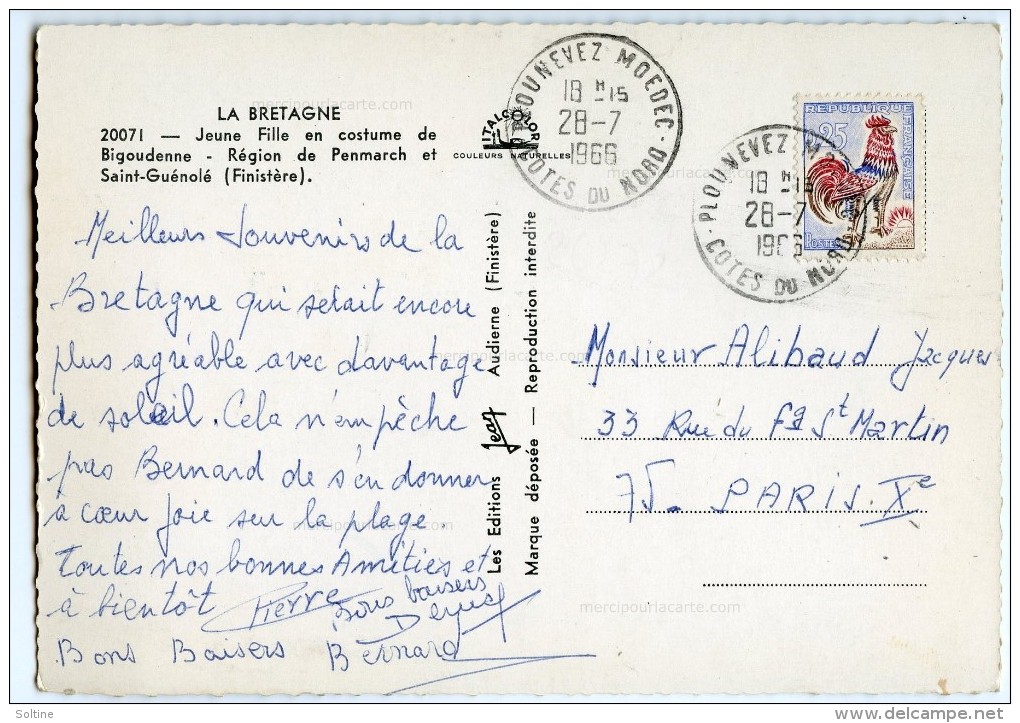 LA BRETAGNE
20071 — Jeune Fille en costume de
Bigoudenne - Région de Penmarch et
Saint-Guénolé (Finistère).
ITALCOLOR
COULEURS NATURELLES
PLOUNEVEZ MOEDEC
18 H 15
28-7
1966
COTES DU NORD
PLOUNEVEZ M
18 H 15
28-7
1966
COTES DU NORD
REPUBLIQUE FRANÇAISE
0,25
POSTES
Meilleurs Souvenirs de la
Bretagne qui serait encore
plus agréable avec davantage
de soleil. Cela n'empêche
pas Bernard de s'en donner
à cœur joie sur la plage.
Toutes nos bonnes Amitiés et
à bientôt Pierre
Bons baisers
Bons Baisers Bernard
Les Editions Jean Audierne (Finistère)
Marque déposée — Reproduction interdite
Monsieur Alibaud Jacques
33 Rue du Fg St Martin
75. PARIS. Xe
mercipourlacarte.com
mercipourlacarte.com
mercipourlacarte.com
mercipourlacarte.com
mercipourlacarte.com
mercipourlacarte.com
Soltine
www.delcampe.net